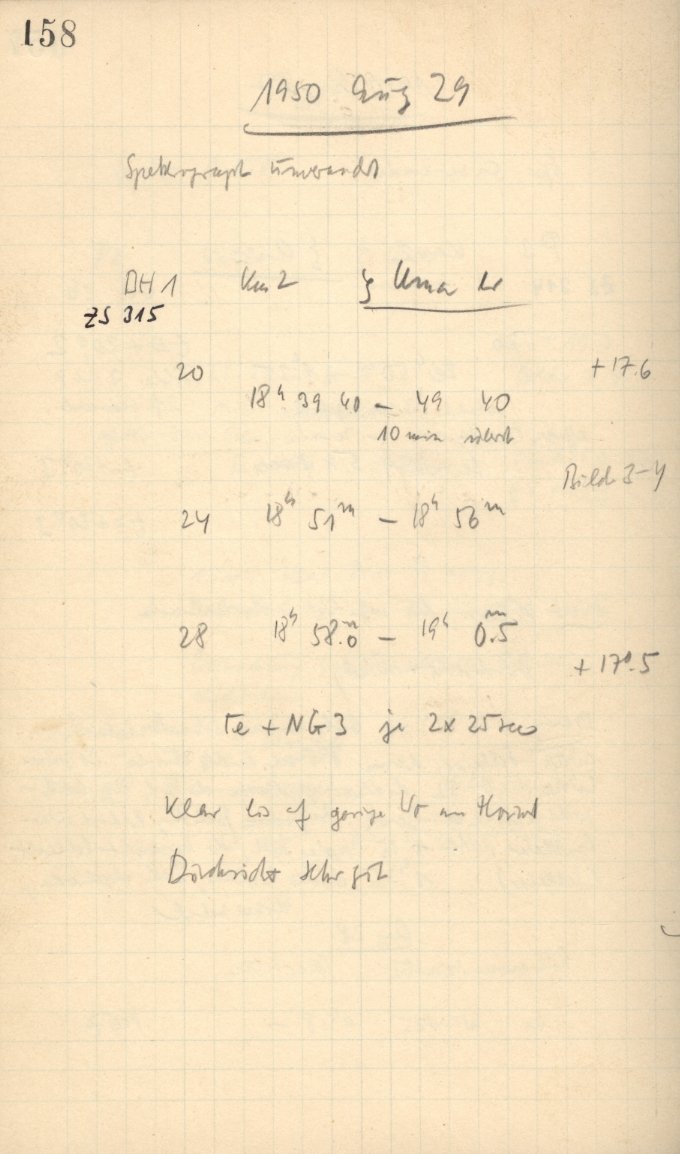 158
1950 Aug 29
Spektrograph unverändt
DH 1 Kas 2 ζ Umar
ZS 315
20 +17.6
18h 39 40 – 49 40
10 min
Bild 3-4
24 18h 51m – 18h 56m
28 18h 58.m0 – 19h 0.m5
+17°.5
Fe + NG 3 je 2x 25 sec
Klar bis auf geringe Wo am Horizont
Durchsicht sehr gut